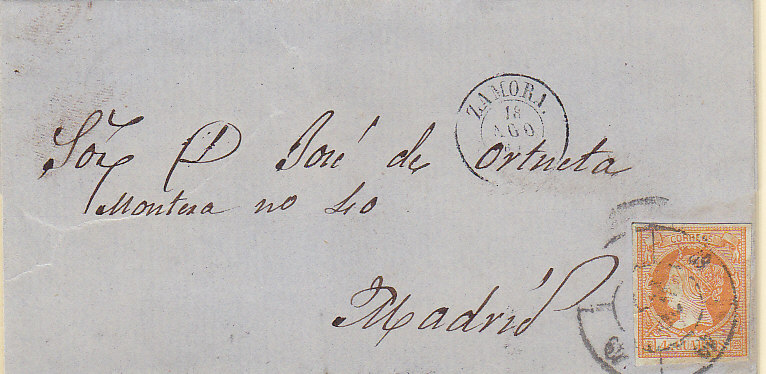 ZAMORA.
18
AGO
Sor D José de Ortueta
Montera no 40
Madrid
CORREOS